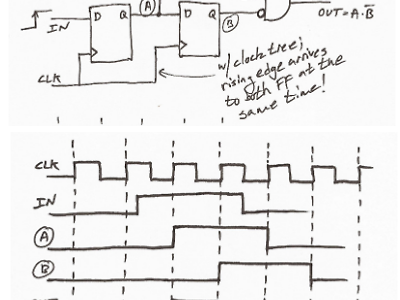 D Q
A
D Q
B
IN
OUT = A · B̅
CLK
w/ clock tree;
rising edge arrives
to both FF at the
same time!
CLK
IN
A
B